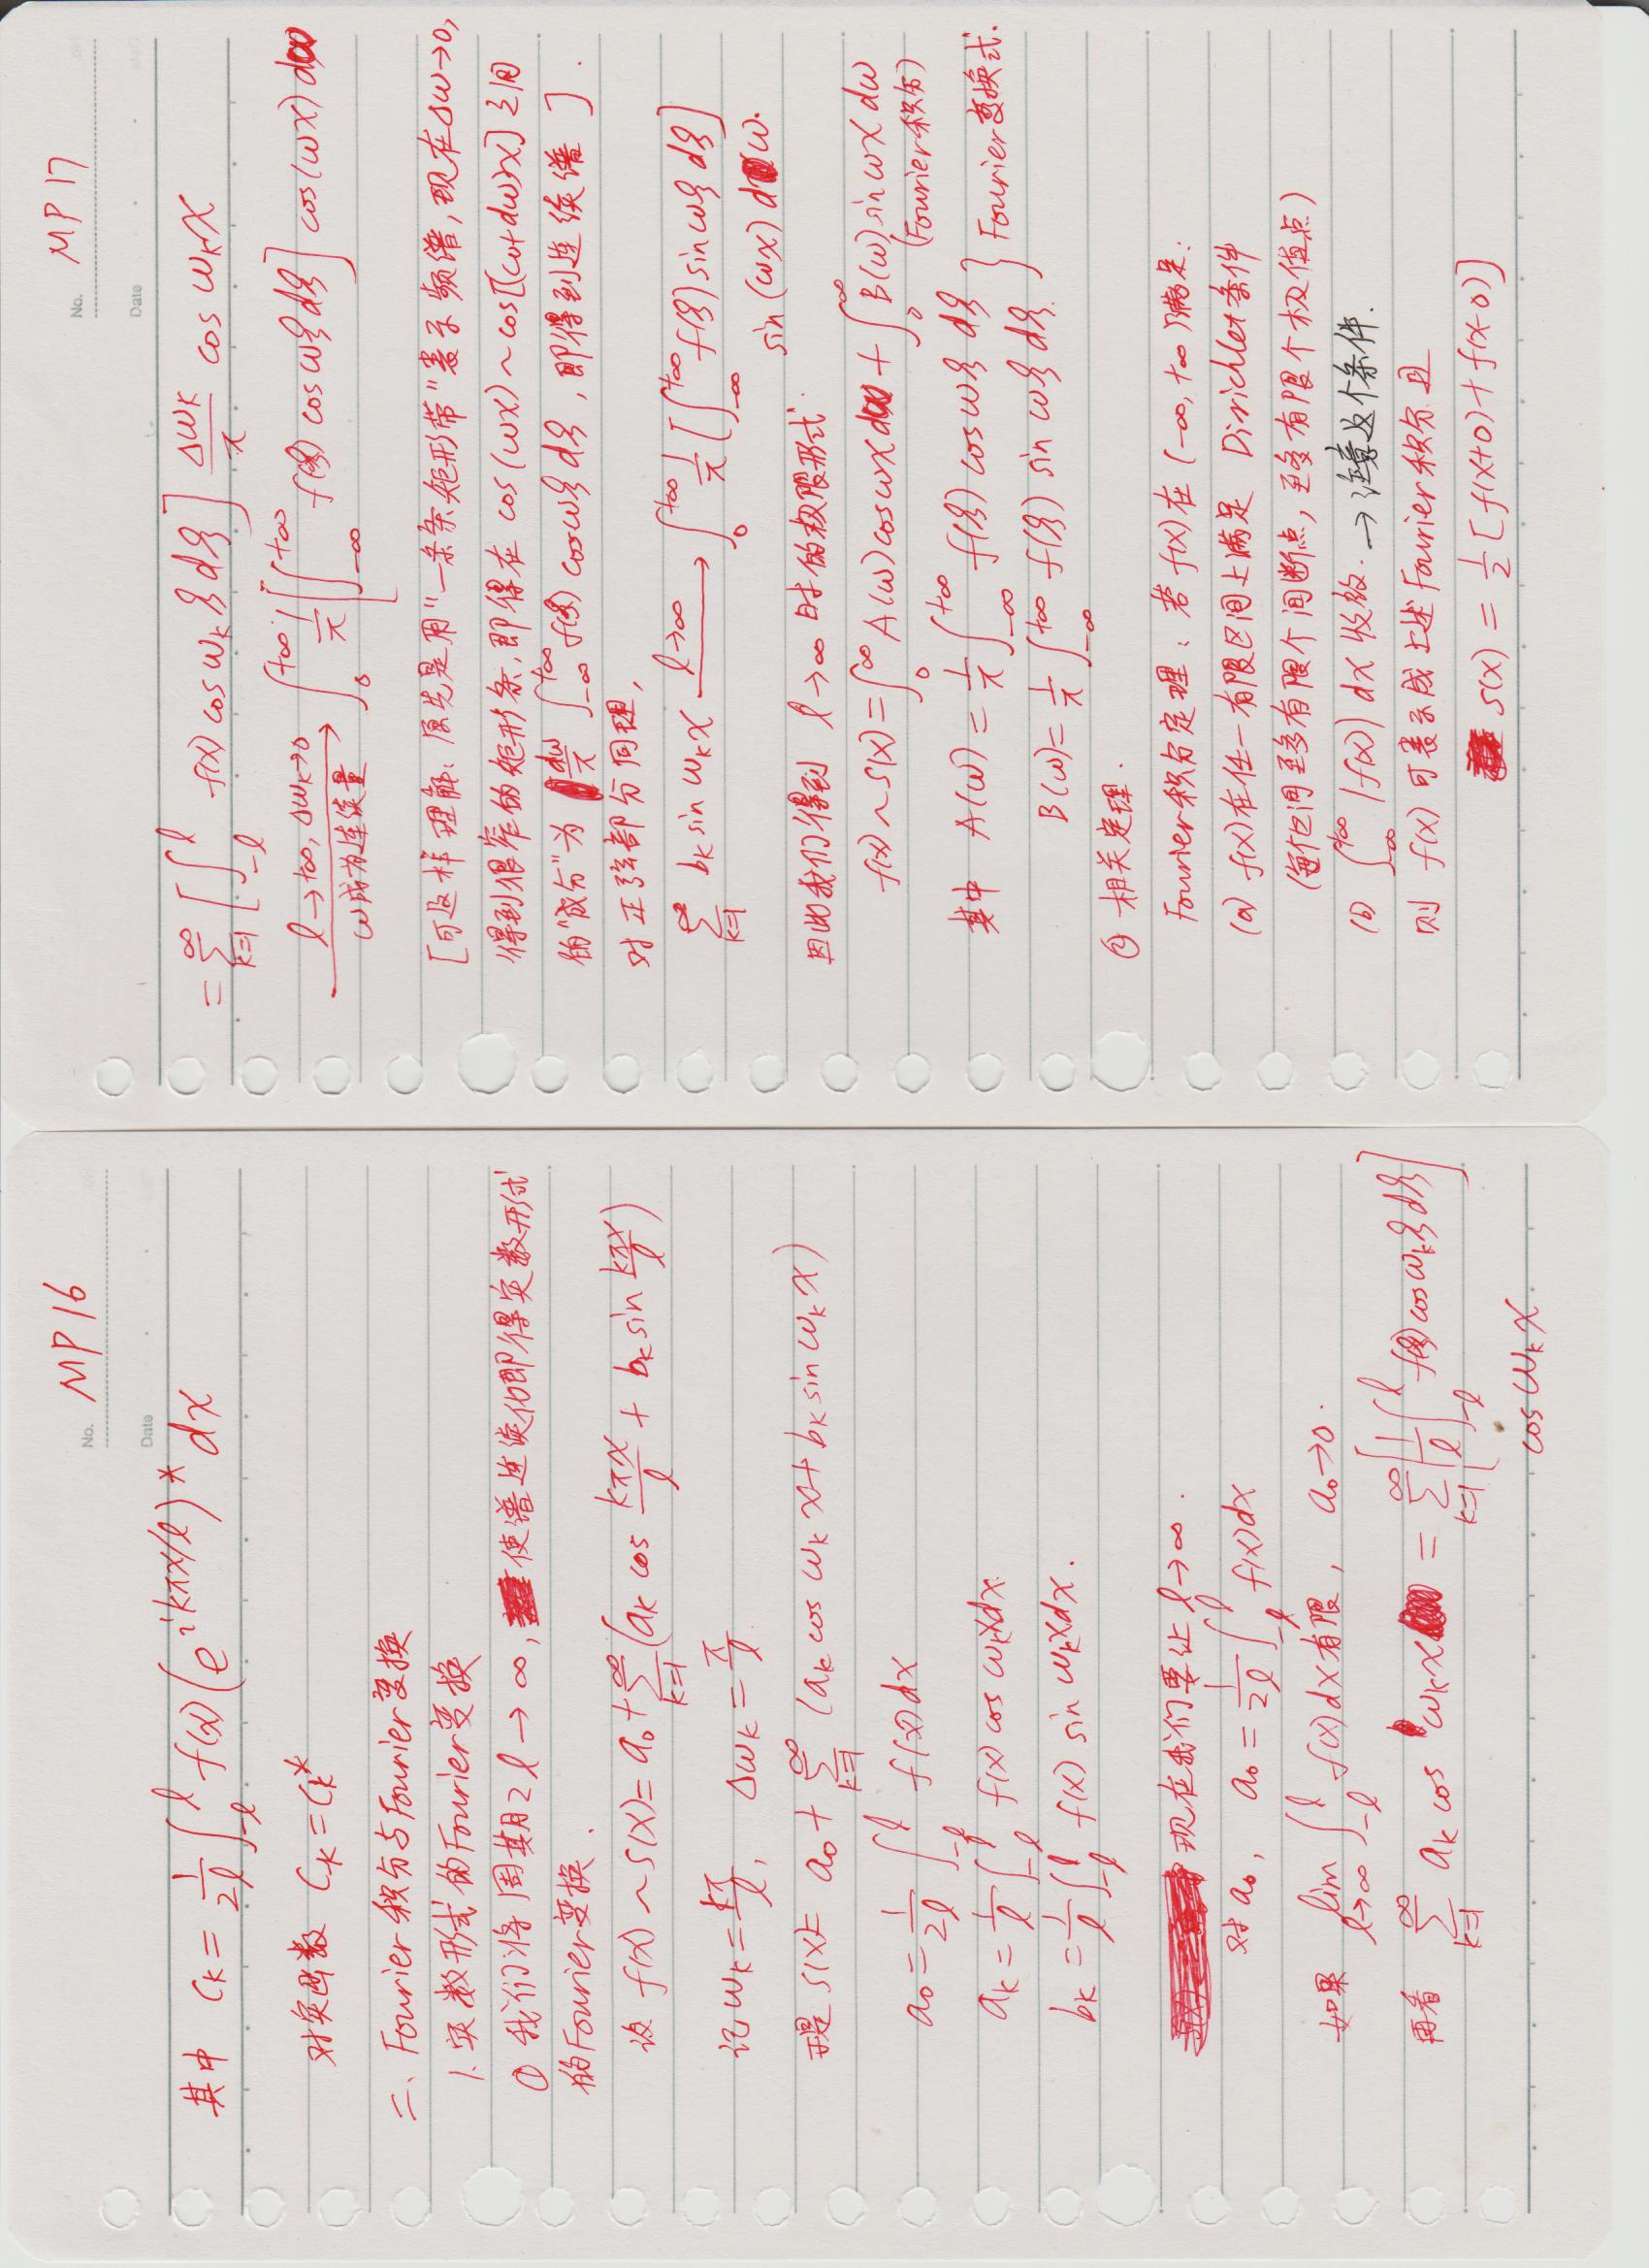 No. MP 16
Date
其中 C_k = \frac{1}{2l} \int_{-l}^{l} f(x) (e^{ikπx/l})^* dx
对实函数 C_{-k} = C_k^*
二、Fourier积分与Fourier变换
1. 实数形式的Fourier变换
① 我们将周期2l→∞, 使谱连续化即得实数形式
的Fourier变换.
设 f(x) ~ S(x) = a_0 + \sum_{k=1}^{∞} (a_k cos \frac{kπx}{l} + b_k sin \frac{kπx}{l})
记 ω_k = \frac{kπ}{l}, Δω_k = \frac{π}{l}.
于是 S(x) = a_0 + \sum_{k=1}^{∞} (a_k cos ω_k x + b_k sin ω_k x)
a_0 = \frac{1}{2l} \int_{-l}^{l} f(x) dx
a_k = \frac{1}{l} \int_{-l}^{l} f(x) cos ω_k x dx.
b_k = \frac{1}{l} \int_{-l}^{l} f(x) sin ω_k x dx.
现在我们要让 l→∞.
对 a_0, a_0 = \frac{1}{2l} \int_{-l}^{l} f(x) dx
如果 \lim_{l→∞} \int_{-l}^{l} f(x) dx 有限, a_0→0.
再看 \sum_{k=1}^{∞} a_k cos ω_k x = \sum_{k=1}^{∞} [\frac{1}{l} \int_{-l}^{l} f(ξ) cos ω_k ξ dξ]
cos ω_k x.
No. MP 17
Date
= \sum_{k=1}^{∞} [\int_{-l}^{l} f(x) cos ω_k ξ dξ] \frac{Δω_k}{π} cos ω_k x
l→+∞, Δω_k→0 \int_0^{+∞} \frac{1}{π} [\int_{-∞}^{+∞} f(ξ) cos ωξ dξ] cos(ωx) dω
ω成为连续量
[可这样理解: 原先是用“一条条矩形带”表示频谱, 现在Δω→0,
得到很窄的矩形条, 即得在 cos(ωx) ~ cos[(ω+dω)x] 之间
的“成分”为 \frac{dω}{π} \int_{-∞}^{+∞} f(ξ) cos ωξ dξ, 即得到连续谱].
对正弦部分同理,
\sum_{k=1}^{∞} b_k sin ω_k x \xrightarrow{l→∞} \int_0^{+∞} \frac{1}{π} [\int_{-∞}^{+∞} f(ξ) sin ωξ dξ]
sin(ωx) dω.
因此我们得到 l→∞ 时的极限形式.
f(x) ~ S(x) = \int_0^{∞} A(ω) cos ωx dω + \int_0^{∞} B(ω) sin ωx dω
(Fourier积分)
其中 A(ω) = \frac{1}{π} \int_{-∞}^{+∞} f(ξ) cos ωξ dξ
B(ω) = \frac{1}{π} \int_{-∞}^{+∞} f(ξ) sin ωξ dξ.
} Fourier变换式.
② 相关定理.
Fourier积分定理: 若 f(x) 在 (-∞, +∞) 满足:
(a) f(x) 在任一有限区间上满足 Dirichlet条件
(每个区间至多有限个间断点, 至多有限个极值点)
(b) \int_{-∞}^{+∞} |f(x)| dx 收敛. → 注意这个条件.
则 f(x) 可表示成上述Fourier积分且
S(x) = \frac{1}{2} [f(x+0) + f(x-0)]